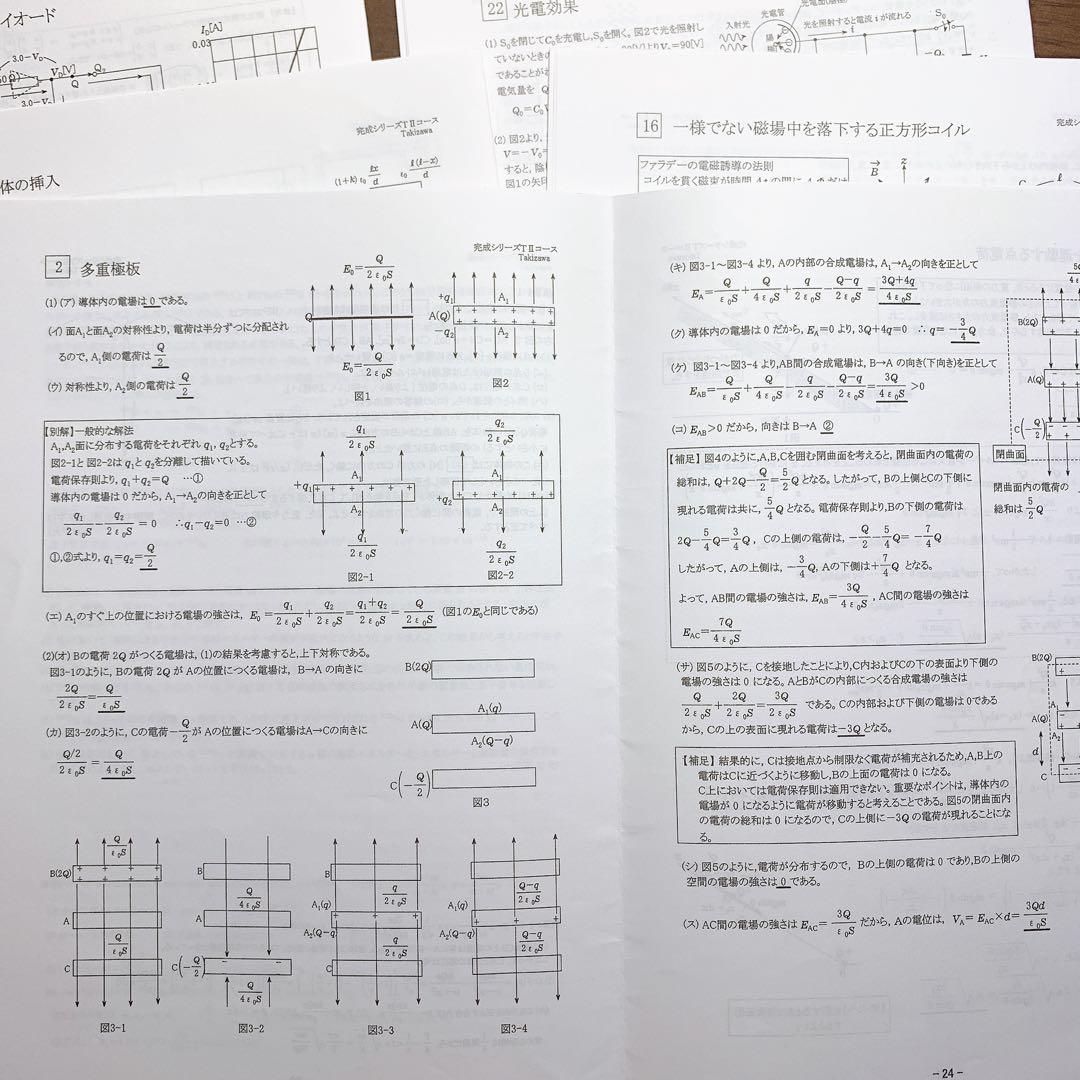 イオード
I_D[A]
0.03
3.0−V_D
V_D[V]
Q
3.0−V_D
22 光電効果
(1) S₀を閉じてC₀を充電し,S₀を開く。図2で光を照射し
ていないときの
V₀=90[V]
であることが
電気量を Q
Q₀=C₀V
(2) 図2より,
V=−V₀=
すると, 陰
図1の矢印
入射光
光電管
光を照射すると電流 i が流れる
S₀
完成シリーズTⅡコース
Takizawa
体の挿入
16 一様でない磁場中を落下する正方形コイル
ファラデーの電磁誘導の法則
コイルを貫く磁束が時間
B
z
ℓ
完成シリーズTⅡコース
Takizawa
2 多重極板
(1) (ア) 導体内の電場は 0 である。
(イ) 面A₁と面A₂の対称性より, 電荷は半分ずつに分配され
るので, A₁側の電荷は Q/2
(ウ) 対称性より, A₂側の電荷は Q/2
E₀=Q/2ε₀S
Q
E₀=Q/2ε₀S
図1
+q₁
A(Q)
−q₂
A₁
A₂
図2
【別解】一般的な解法
A₁,A₂面に分布する電荷をそれぞれ q₁, q₂とする。
図2-1と図2-2は q₁と q₂を分離して描いている。
電荷保存則より, q₁+q₂=Q …①
導体内の電場は 0 だから, A₁→A₂の向きを正として
q₁/2ε₀S−q₂/2ε₀S=0 ∴q₁−q₂=0 …②
①,②式より, q₁=q₂=Q/2
q₁/2ε₀S
+q₁
A₁
A₂
q₁/2ε₀S
図2-1
q₂/2ε₀S
A₁
+q₂
A₂
q₂/2ε₀S
図2-2
(エ) A₁のすぐ上の位置における電場の強さは, E₀=q₁/2ε₀S+q₂/2ε₀S=q₁+q₂/2ε₀S=Q/2ε₀S (図1のE₀と同じである)
(2)(オ) Bの電荷 2Q がつくる電場は, (1)の結果を考慮すると, 上下対称である。
図3-1のように, Bの電荷 2Q が Aの位置につくる電場は, B→A の向きに
2Q/2ε₀S=Q/ε₀S
(カ) 図3-2のように, Cの電荷−Q/2が Aの位置につくる電場はA→Cの向きに
Q/2/2ε₀S=Q/4ε₀S
B(2Q)
A₁(q)
A(Q)
A₂(Q−q)
C(−Q/2)
図3
Q/ε₀S
B(2Q)
A
Q/ε₀S
C
図3-1
B
Q/4ε₀S
A
C(−Q/2)
Q/4ε₀S
図3-2
B
q/2ε₀S
A₁(q)
A₂(Q−q)
q/2ε₀S
C
図3-3
Q−q/2ε₀S
A₁(q)
A₂(Q−q)
Q−q/2ε₀S
図3-4
(キ) 図3-1〜図3-4 より, Aの内部の合成電場は, A₁→A₂の向きを正として
E_A=Q/ε₀S+Q/4ε₀S+q/2ε₀S−Q−q/2ε₀S=3Q+4q/4ε₀S
(ク) 導体内の電場は 0 だから, E_A=0 より, 3Q+4q=0 ∴ q=−3/4Q
(ケ) 図3-1〜図3-4 より, AB間の合成電場は, B→A の向き(下向き)を正として
E_AB=Q/ε₀S+Q/4ε₀S−q/2ε₀S−Q−q/2ε₀S=3Q/4ε₀S>0
(コ) E_AB>0 だから, 向きは B→A ②
【補足】 図4のように, A,B,Cを囲む閉曲面を考えると, 閉曲面内の電荷の
総和は, Q+2Q−Q/2=5/2Q となる。したがって, Bの上側とCの下側に
現れる電荷は共に, 5/4Q となる。電荷保存則より, Bの下側の電荷は
2Q−5/4Q=3/4Q , Cの上側の電荷は, −Q/2−5/4Q=−7/4Q
したがって, Aの上側は, −3/4Q, Aの下側は+7/4Q となる。
よって, AB間の電場の強さは, E_AB=3Q/4ε₀S , AC間の電場の強さは
E_AC=7Q/4ε₀S
(サ) 図5のように, Cを接地したことにより, C内およびCの下の表面より下側の
電場の強さは 0 になる。AとBがCの内部につくる合成電場の強さは
Q/2ε₀S+2Q/2ε₀S=3Q/2ε₀S である。Cの内部および下側の電場は 0である
から, Cの上の表面に現れる電荷は−3Qとなる。
【補足】 結果的に, Cは接地点から制限なく電荷が補充されるため, A,B上の
電荷はCに近づくように移動し, Bの上面の電荷は 0 になる。
C上においては電荷保存則は適用できない。重要なポイントは, 導体内の
電場が 0 になるように電荷が移動すると考えることである。図5の閉曲面内
の電荷の総和は 0 になるので, Cの上側に−3Q の電荷が現れることにな
る。
(シ) 図5のように, 電荷が分布するので, Bの上側の電荷は 0 であり, Bの上側の
空間の電場の強さは 0 である。
(ス) AC間の電場の強さは E_AC=3Q/ε₀S だから, Aの電位は, V_A=E_AC×d=3Qd/ε₀S
B(2Q)
A(Q)
C(−Q/2)
閉曲面
閉曲面内の電荷の
総和は 5/2Q
B(2Q)
A₁
A(Q)
A₂
d
C
−24−